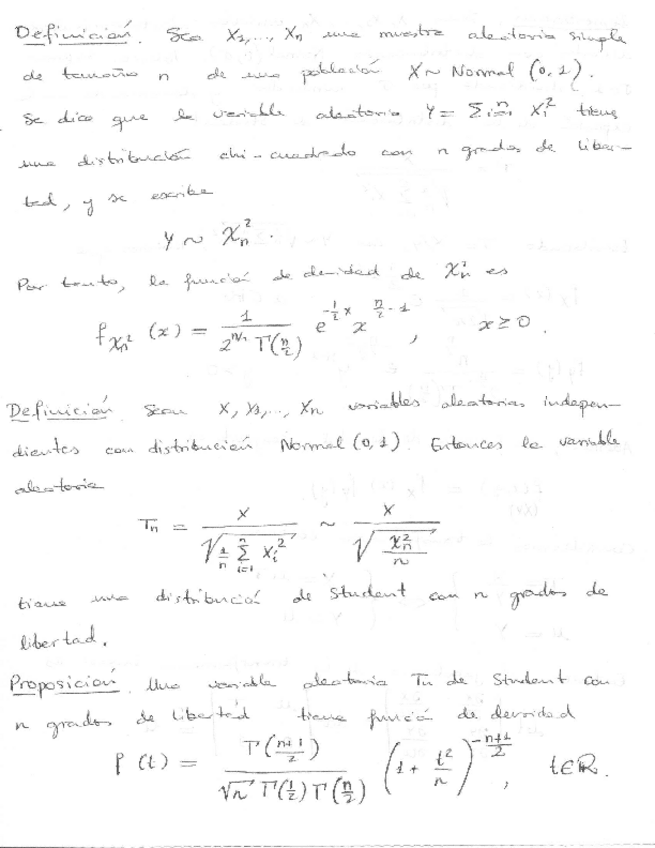 Definición. Sea X₁,..., Xₙ una muestra aleatoria simple
de tamaño n de una población X ~ Normal (0,1).
Se dice que la variable aleatoria Y = Σᵢ₌₁ⁿ Xᵢ² tiene
una distribución chi-cuadrado con n grados de liber-
tad, y se escribe
Y ~ χₙ².
Por tanto, la función de densidad de χₙ² es
f_{χₙ²} (x) = 1 / (2^{n/2} Γ(n/2)) e^{-1/2 x} x^{n/2 - 1}, x ≥ 0.
Definición. Sean X, X₁,..., Xₙ variables aleatorias indepen-
dientes con distribución Normal (0,1). Entonces la variable
aleatoria
Tₙ = X / √(1/n Σᵢ₌₁ⁿ Xᵢ²) ~ X / √(χₙ²/n)
tiene una distribució de Student con n grados de
libertad.
Proposición. Una variable aleatoria Tn de Student con
n grados de libertad tiene funció de densidad
f (t) = Γ((n+1)/2) / (√n Γ(1/2) Γ(n/2)) (1 + t²/n)^{-(n+1)/2}, t∈ℝ.